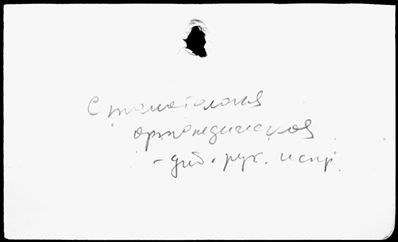 Стоматология
ортопедическая
- диб. рук. и спр.